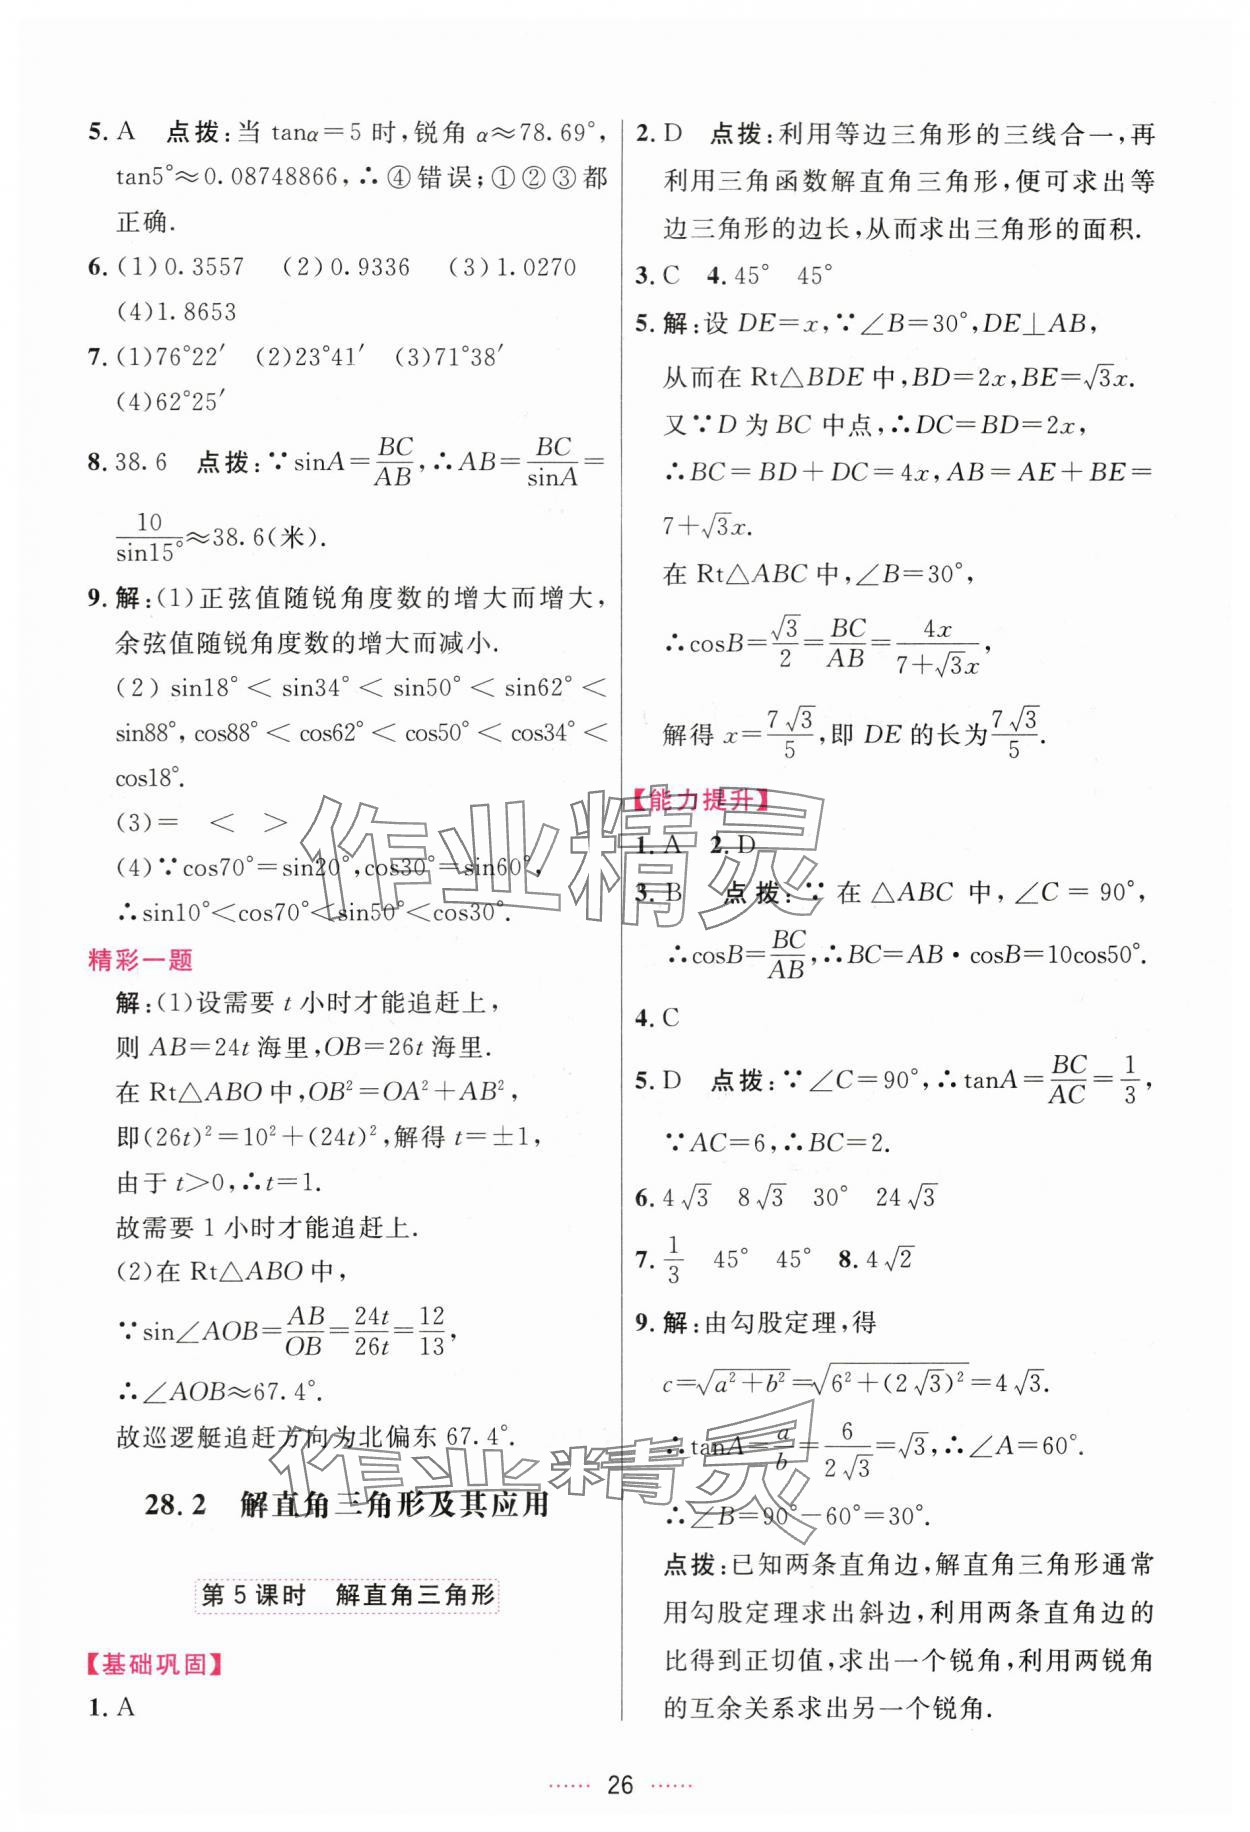 5. A 点拨:当 tanα=5 时,锐角 α≈78.69°,
tan5°≈0.08748866,∴④错误;①②③都
正确.
6. (1)0.3557 (2)0.9336 (3)1.0270
(4)1.8653
7. (1)76°22′ (2)23°41′ (3)71°38′
(4)62°25′
8. 38.6 点拨:∵sinA=BC/AB,∴AB=BC/sinA=
10/sin15°≈38.6(米).
9. 解:(1)正弦值随锐角度数的增大而增大,
余弦值随锐角度数的增大而减小.
(2) sin18° < sin34° < sin50° < sin62° <
sin88°, cos88° < cos62° < cos50° < cos34° <
cos18°.
(3)= < >
(4)∵cos70°=sin20°,cos30°=sin60°,
∴sin10°<cos70°<sin50°<cos30°.
精彩一题
解:(1)设需要 t 小时才能追赶上,
则 AB=24t 海里,OB=26t 海里.
在 Rt△ABO 中,OB²=OA²+AB²,
即(26t)²=10²+(24t)²,解得 t=±1,
由于 t>0,∴t=1.
故需要 1 小时才能追赶上.
(2)在 Rt△ABO 中,
∵sin∠AOB=AB/OB=24t/26t=12/13,
∴∠AOB≈67.4°.
故巡逻艇追赶方向为北偏东 67.4°.
28.2 解直角三角形及其应用
第 5 课时 解直角三角形
【基础巩固】
1. A
2. D 点拨:利用等边三角形的三线合一,再
利用三角函数解直角三角形,便可求出等
边三角形的边长,从而求出三角形的面积.
3. C 4. 45° 45°
5. 解:设 DE=x,∵∠B=30°,DE⊥AB,
从而在 Rt△BDE 中,BD=2x,BE=√3x.
又∵D 为 BC 中点,∴DC=BD=2x,
∴BC=BD+DC=4x,AB=AE+BE=
7+√3x.
在 Rt△ABC 中,∠B=30°,
∴cosB=√3/2=BC/AB=4x/(7+√3x),
解得 x=7√3/5,即 DE 的长为7√3/5.
【能力提升】
1. A 2. D
3. B 点拨:∵ 在 △ABC 中,∠C = 90°,
∴cosB=BC/AB,∴BC=AB·cosB=10cos50°.
4. C
5. D 点拨:∵∠C=90°,∴tanA=BC/AC=1/3,
∵AC=6,∴BC=2.
6. 4√3 8√3 30° 24√3
7. 1/3 45° 45° 8. 4√2
9. 解:由勾股定理,得
c=√(a²+b²)=√(6²+(2√3)²)=4√3.
∴tanA=a/b=6/(2√3)=√3,∴∠A=60°.
∴∠B=90°-60°=30°.
点拨:已知两条直角边,解直角三角形通常
用勾股定理求出斜边,利用两条直角边的
比得到正切值,求出一个锐角,利用两锐角
的互余关系求出另一个锐角.
26
作业精灵
作业精灵